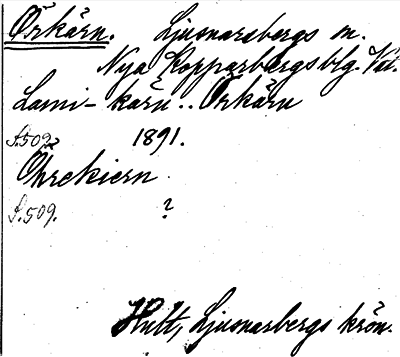 Örkärn. Ljusnarsbergs sn.
Nya Kopparbergs blg. Vstl.
Lomi-kärn.. Örkärn
S. 509. 1891.
Öhrekiern
S. 509. ?
Hult, Ljusnarsbergs krön.